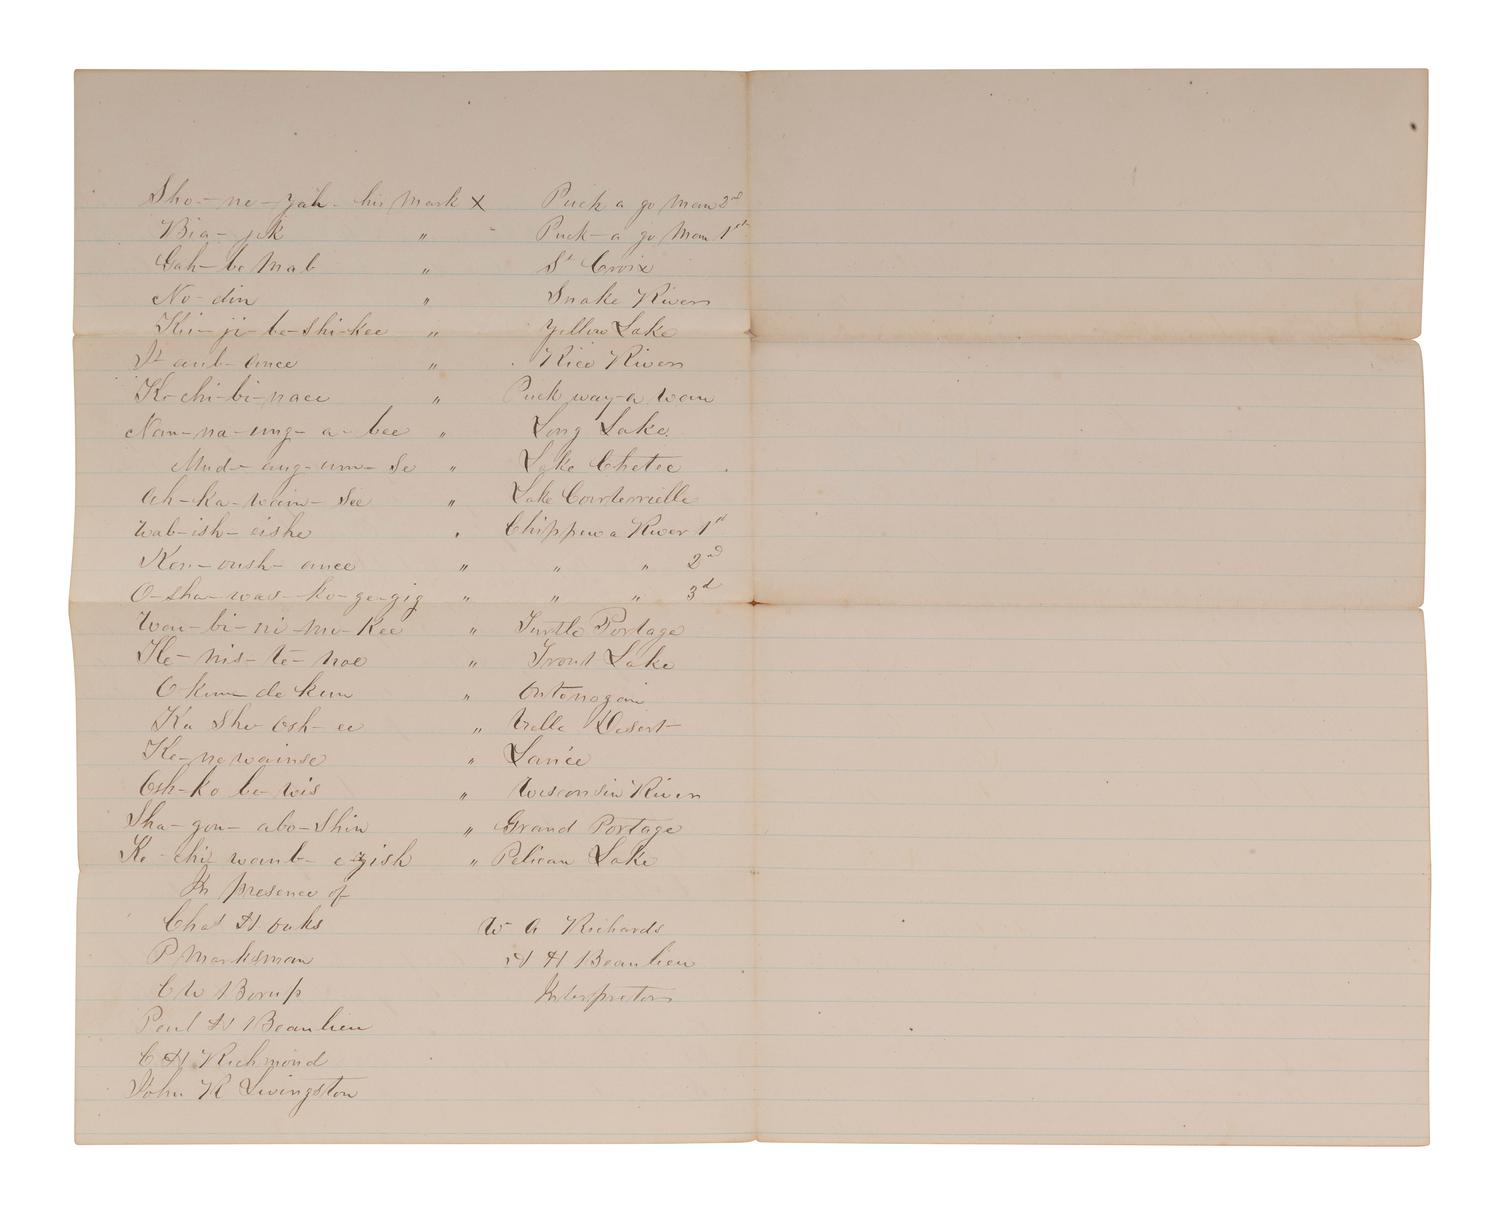 Sho-ne-yah- his Mark X Puck a go Mon 2nd
Bia-jek " Puck-a go Mon 1st
Gah-be Mab " St Croix
No-din " Snake River
Ki-ji-be-shi-kee " Yellow Lake
It aub-ance " Rice River
Ke-chi-bi-nace " Puck way-a wan
Nan-na-ung-a-bee " Long Lake
Mud-aug-um-Se " Lake Chetec
Ah-ka-wain-See " Lake Courterrielle
Wab-ish-eishe " Chippewa River 1st
Ken-oush-ance " " " 2nd
O-sha-was-ko-ge-gig " " " 3d
Wau-bi-ni-mi-Kee " Turtle Portage
Ke-nis-te-noe " Trout Lake
O-kun-de kun " Ontonagain
Ka She Osh-ee " Vella Desert
Ke-ne wainse " Lance
Osh-ko be-wis " Wisconsin River
Sha-gou-abo-Shin " Grand Portage
Ke-chi waub-e-gish " Pelican Lake
In presence of
Chas H Oaks W A Richards
P Marksman H H Beaulieu
C W Borup Interpretors
Paul H Beaulieu
C H Richmond
John R Livingston